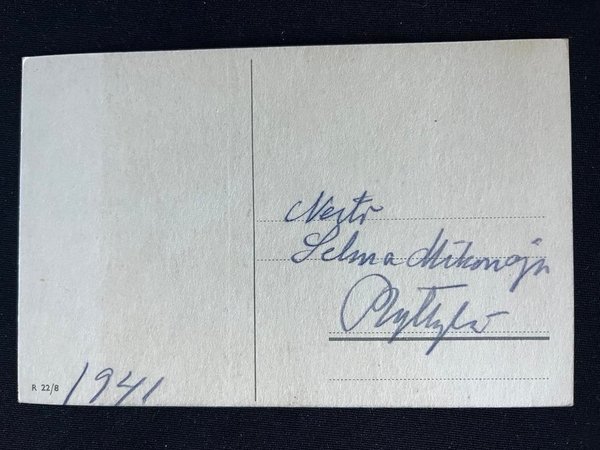 Neiti
Selma Mikonoja
Ryttylä
R 22/8
1941